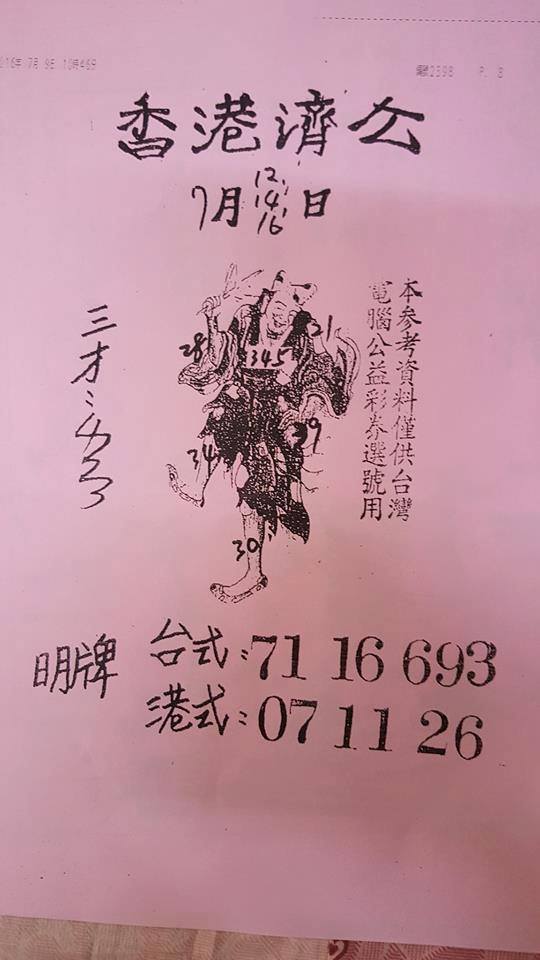 2016年 7月 9日 10時46分 P. 8
香港濟公
7月12,14,16日
本參考資料僅供台灣
電腦公益彩券選號用
三才:
28
21
345
39
34
30
明牌
台式:71 16 693
港式:07 11 26